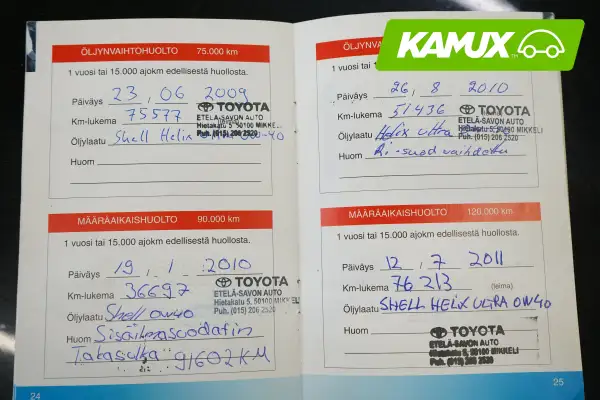 KAMUX
ÖLJYNVAIHTOHUOLTO 75.000 km
1 vuosi tai 15.000 ajokm edellisestä huollosta.
Päiväys 23, 06 2009
Km-lukema 75577
TOYOTA
ETELÄ-SAVON AUTO
Hietakatu 5, 50100 MIKKELI
Puh. (015) 206 2520
Öljylaatu Shell Helix 0W-40
Huom
MÄÄRÄAIKAISHUOLTO 90.000 km
1 vuosi tai 15.000 ajokm edellisestä huollosta.
Päiväys 19, 1 2010
Km-lukema 36697
TOYOTA
ETELÄ-SAVON AUTO
Hietakatu 5, 50100 MIKKELI
Puh. (015) 206 2520
Öljylaatu Shell 0W40
Huom Sisäilmasuodatin
Takasulka 91602 KM
24
ÖLJYNVA
1 vuosi tai 1
Päiväys 26, 8 2010
Km-lukema 51436
TOYOTA
ETELÄ-SAVON AUTO
Hietakatu 5, 50100 MIKKELI
Puh. (015) 206 2520
Öljylaatu Helix Ultra
Huom Ri-suod vaihdettu
MÄÄRÄAIKAISHUOLTO 120.000 km
1 vuosi tai 15.000 ajokm edellisestä huollosta.
Päiväys 12, 7 2011
Km-lukema 76213 (leima)
Öljylaatu SHELL HELIX ULTRA 0W40
Huom
TOYOTA
ETELÄ-SAVON AUTO
Hietakatu 5, 50100 MIKKELI
Puh. (015) 206 2520
25